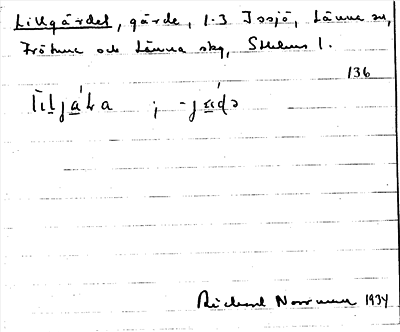 Lillgärdet, gärde, 1-3 Issjö, Länna sn,
Frötuna och Länna skg, Sthlms l.
136
; -j
Rickard Norrman 1934